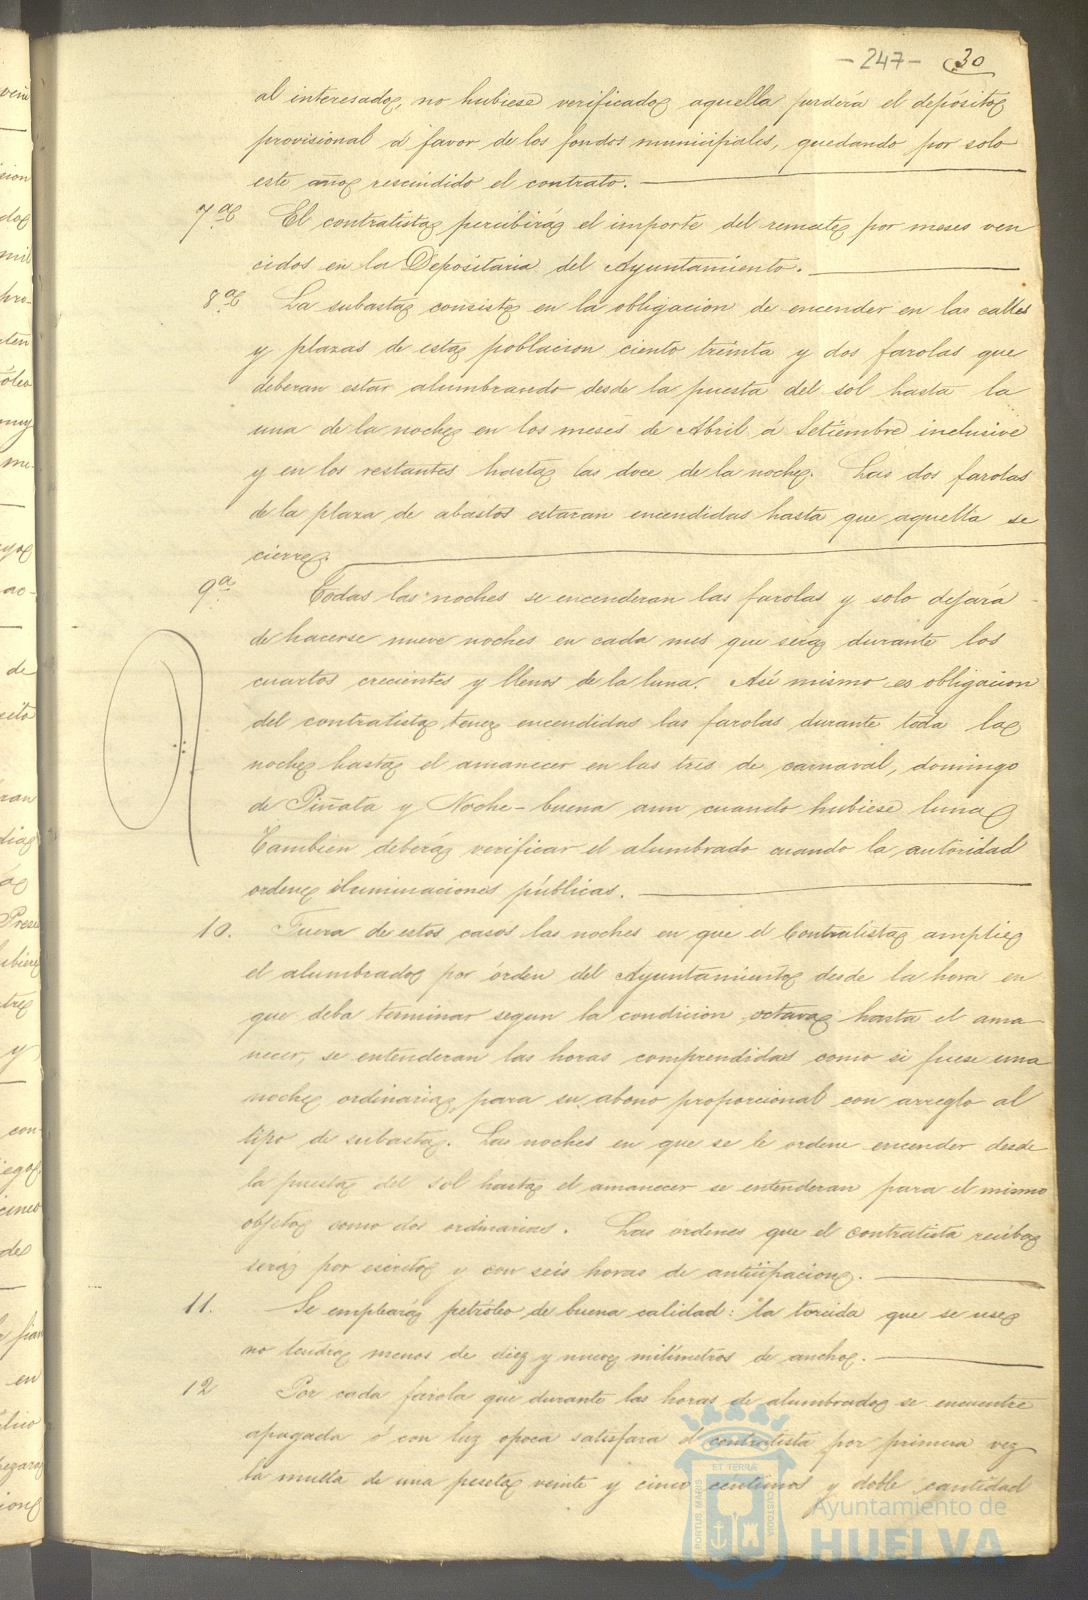 -247- 30
al interesado, no hubiese verificado aquella perderá el depósito
provisional á favor de los fondos municipales, quedando por solo
este año rescindido el contrato.
7ª El contratista percibirá el importe del remate por meses ven
cidos en la Depositaria del Ayuntamiento.
8ª La subasta consiste en la obligacion de encender en las calles
y plazas de esta poblacion ciento treinta y dos farolas que
deberan estar alumbrando desde la puesta del sol hasta la
una de la noche en los meses de Abril á Setiembre inclusive
y en los restantes hasta las doce de la noche. Las dos farolas
de la plaza de abastos estaran encendidas hasta que aquella se
cierre.
9ª Todas las noches se encenderan las farolas y solo dejará
de hacerse nueve noches en cada mes que será durante los
cuartos crecientes y llenos de la luna. Asi mismo es obligacion
del contratista tener encendidas las farolas durante toda la
noche hasta el amanecer en las tres de carnaval, domingo
de Piñata y Noche-buena aun cuando hubiese luna
Tambien deberá verificar el alumbrado cuando la autoridad
ordene iluminaciones públicas.
10. Fuera de estos casos las noches en que el Contratista amplie
el alumbrado por órden del Ayuntamiento desde la hora en
que deba terminar segun la condicion octava hasta el ama
necer, se entenderan las horas comprendidas como si fuese una
noche ordinaria, para su abono proporcional con arreglo al
tipo de subasta. Las noches en que se le ordene encender desde
la puesta del sol hasta el amanecer se entenderan para el mismo
objeto como dos ordinarias. Las órdenes que el contratista reciba
será por escrito y con seis horas de anticipacion.
11. Se empleará petróleo de buena calidad: la torcida que se use
no tendrá menos de diez y nueve milímetros de ancho.
12 Por cada farola que durante las horas de alumbrado se encuentre
apagada ó con luz opaca satisfara el contratista por primera vez
la multa de una peseta veinte y cinco céntimos y doble cantidad
PORTUS MARIS ET TERRÆ CUSTODIA
Ayuntamiento de
HUELVA